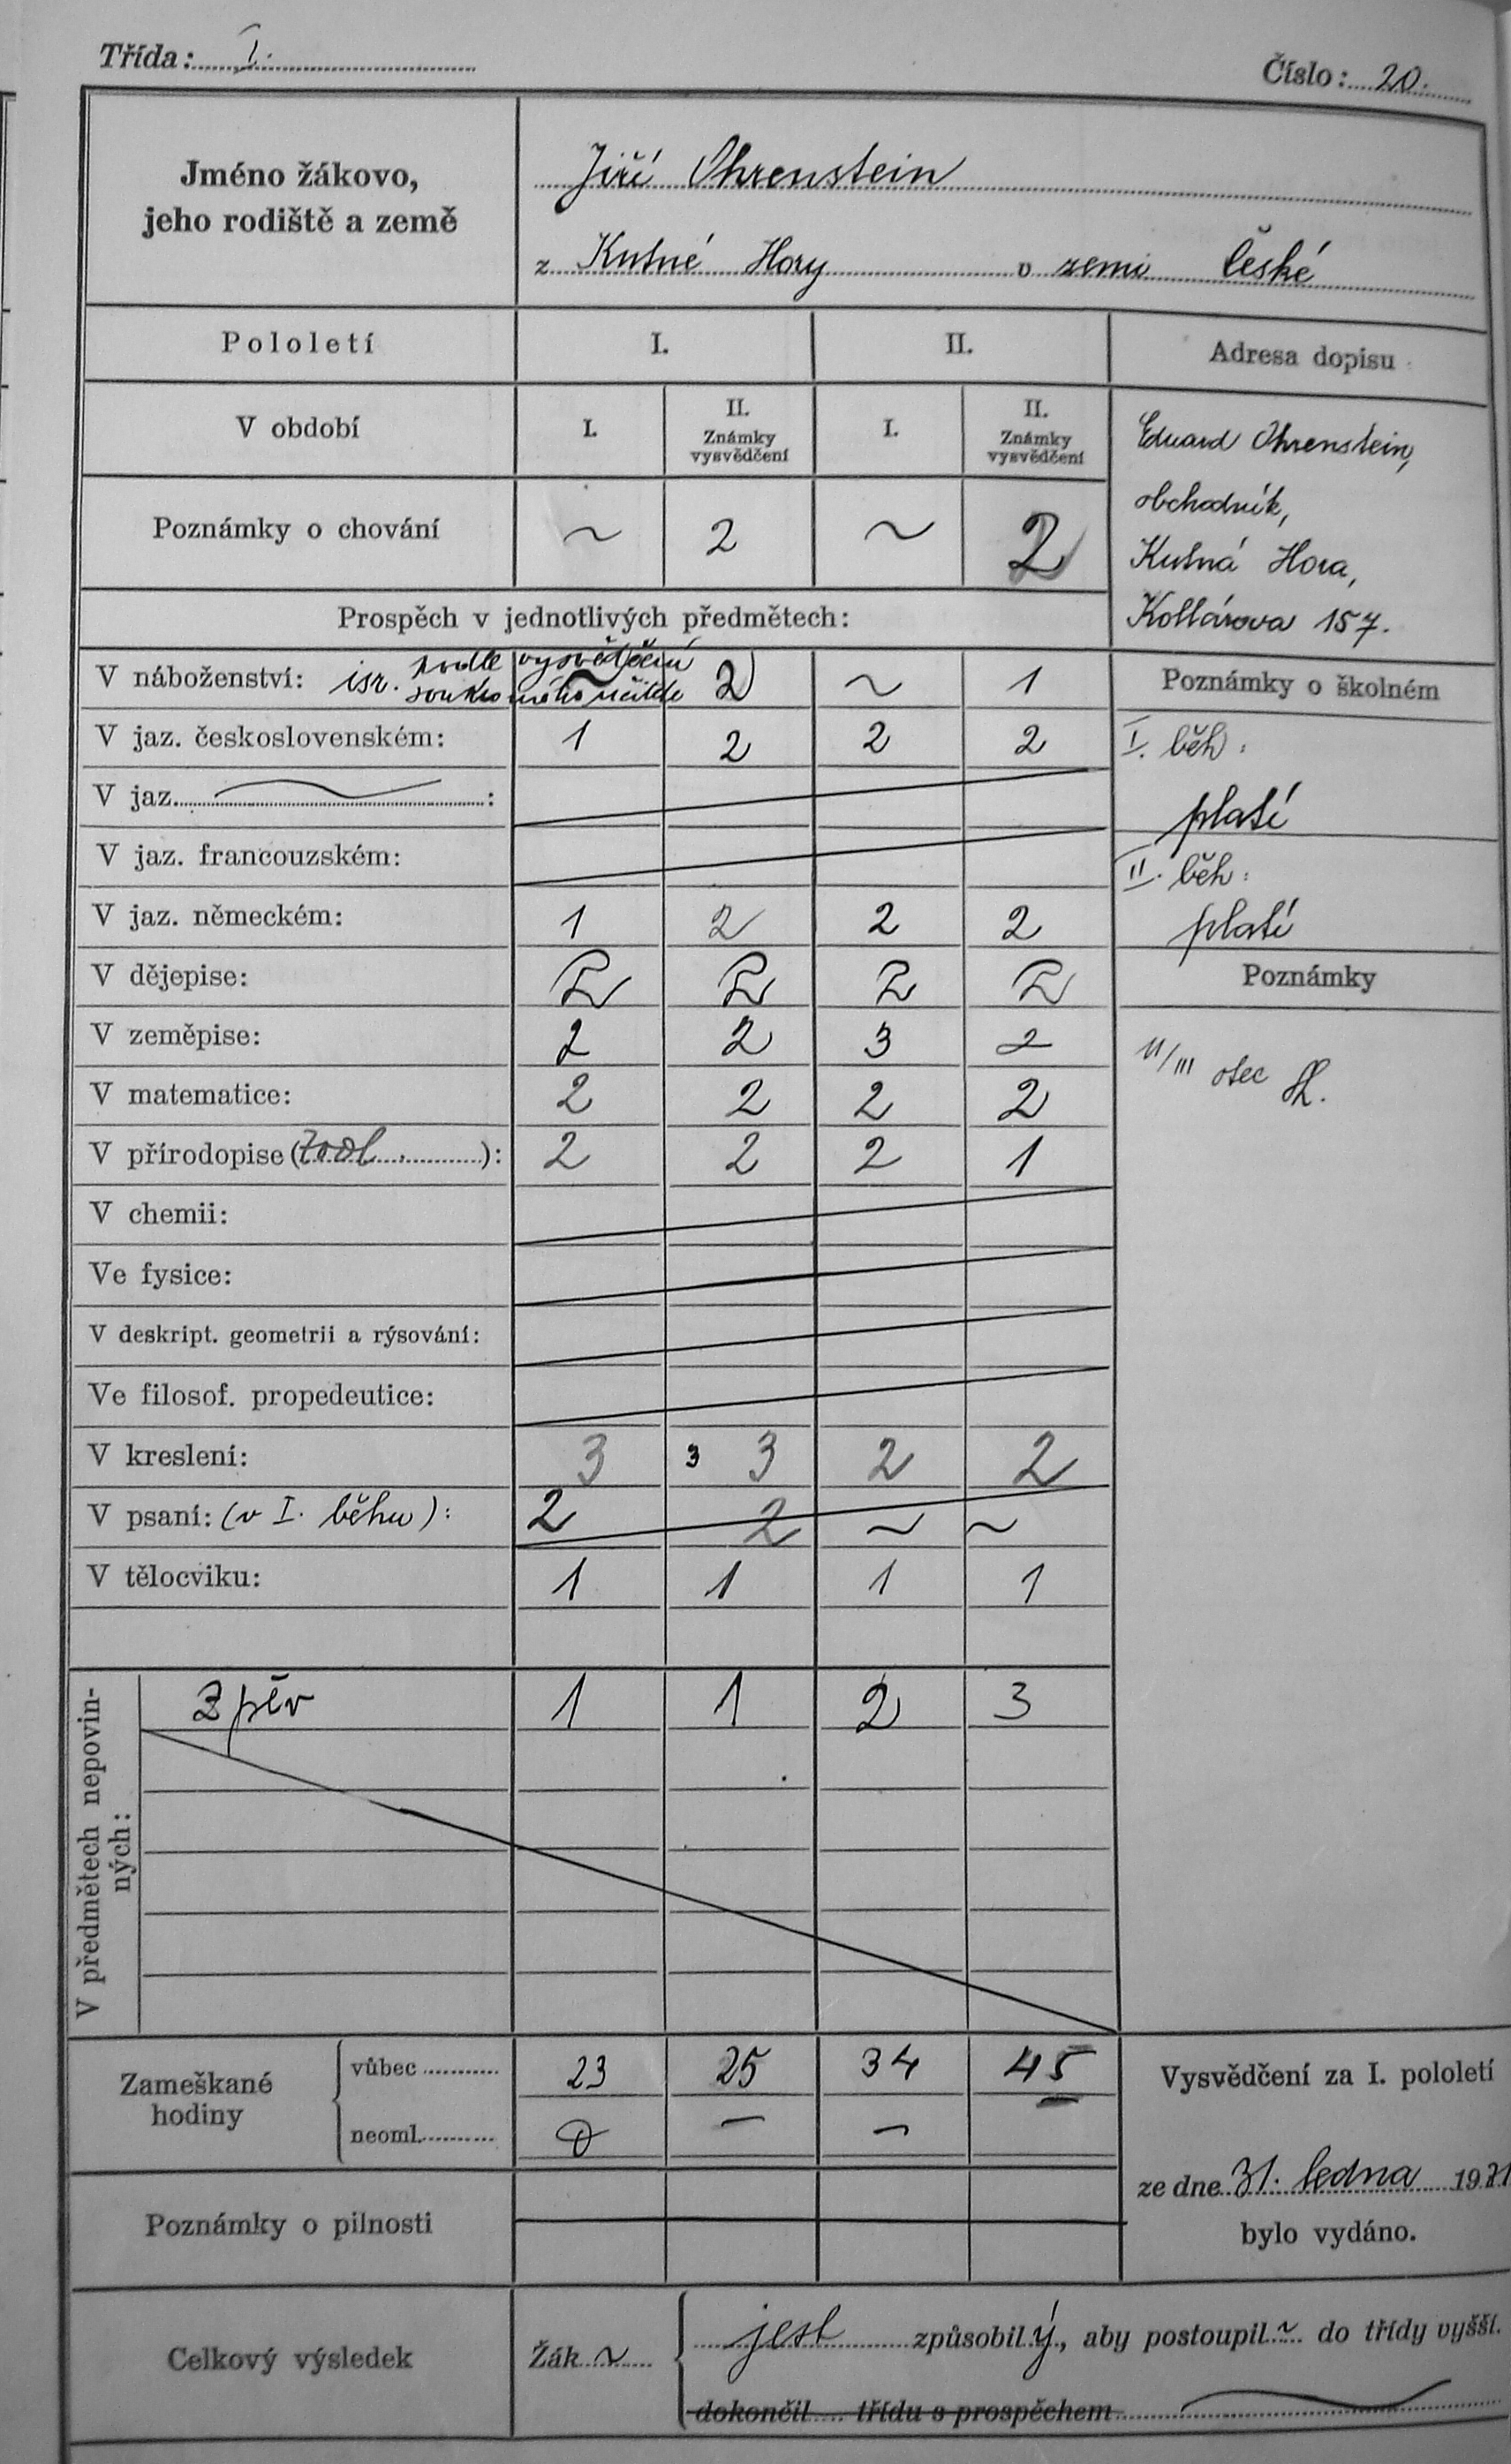 Třída: I.
Číslo: 20.
Jméno žákovo,
jeho rodiště a země
Jiří Ohrenstein
z Kutné Hory v zemi České
Pololetí I. II. Adresa dopisu
V období I. II. Známky vysvědčení I. II. Známky vysvědčení
Eduard Ohrenstein,
obchodník,
Kutná Hora,
Kollárova 157.
Poznámky o chování ~ 2 ~ 2
Prospěch v jednotlivých předmětech:
V náboženství: isr. podle vysvědčení soukromého učitele ~ 2 ~ 1
Poznámky o školném
V jaz. československém: 1 2 2 2
I. běh:
platí
V jaz. :
V jaz. francouzském:
II. běh:
platí
V jaz. německém: 1 2 2 2
V dějepise: 2 2 2 2
Poznámky
V zeměpise: 2 2 3 2
11/III otec
V matematice: 2 2 2 2
V přírodopise (zool. ): 2 2 2 1
V chemii:
Ve fysice:
V deskript. geometrii a rýsování:
Ve filosof. propedeutice:
V kreslení: 3 3 3 2 2
V psaní: (v I. běhu): 2 2 ~ ~
V tělocviku: 1 1 1 1
V předmětech nepovin-
ných:
Zpěv 1 1 2 3
Zameškané
hodiny
vůbec 23 25 34 45
neoml. 0 — —
Vysvědčení za I. pololetí
ze dne 31. ledna 1931
bylo vydáno.
Poznámky o pilnosti
Celkový výsledek
Žák ~ jest způsobilý, aby postoupil ~ do třídy vyšší.
dokončil třídu s prospěchem